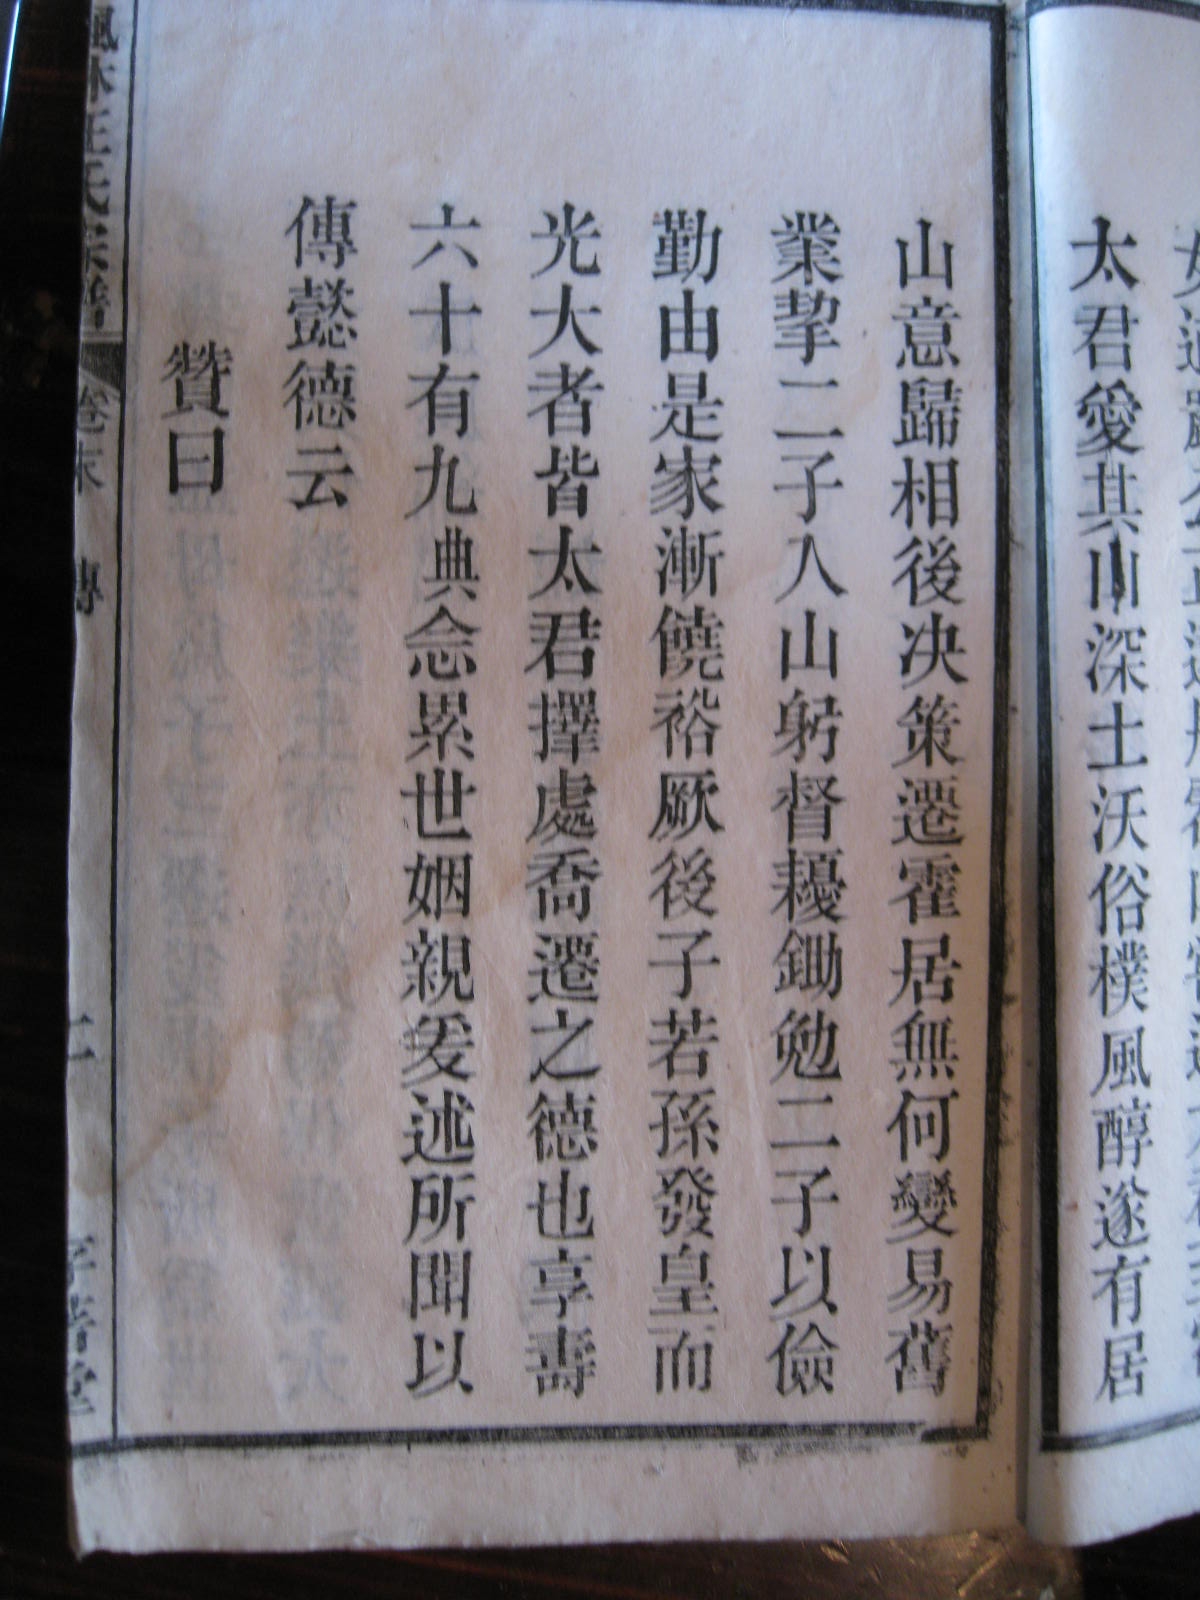 太君愛其山深土沃俗樸風醇遂有居
山意歸相後決策遷霍居無何變易舊
業挈二子入山躬督耰鋤勉二子以儉
勤由是家漸饒裕厥後子若孫發皇而
光大者皆太君擇處喬遷之德也享壽
六十有九典念累世姻親爰述所聞以
傳懿德云
贊曰
楓林王氏宗譜 卷末 傳